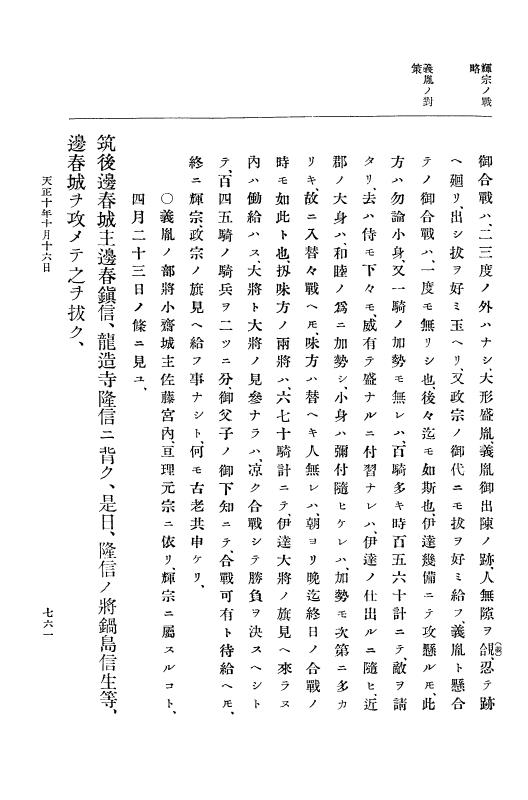 輝宗ノ戰
略
義胤ノ對
策
御合戰ハ、二三度ノ外ハナシ、大形盛胤、義胤御出陳ノ跡、人無隙ヲ
忍テ跡
ヘ廻リ、出シ拔ヲ好ミ玉ヘリ、又政宗ノ御代ニモ拔ヲ好ミ給フ、義胤ト懸合
テノ御合戰ハ、一度モ無リシ也、後々迄モ如斯也、伊達幾備ニテ攻懸ルモ、此
方ハ勿論小身、又一騎ノ加勢モ無レハ、百騎多キ時百五六十計ニテ、敵ヲ請
タリ、去ハ侍モ下々モ、威有テ盛ナルニ付習ナレハ、伊達ノ仕出ルニ隨ヒ、近
郡ノ大身ハ、和睦ノ爲ニ加勢シ、小身ハ彌付隨ヒケレハ、加勢モ次第ニ多カ
リキ、故ニ入替々々戰ヘモ、味方ハ替ヘキ人無レハ、朝ヨリ晩迄終日ノ合戰ノ
時モ如此ト也、扨味方ノ兩將ハ、六七十騎計ニテ、伊達大將ノ旗見ヘ來ラス
內ハ働給ハス、大將ト大將ノ見參ナラハ、凉ク合戰シテ勝負ヲ決スヘシト
テ、百四五騎ノ騎兵ヲ二ツニ分、御父子ノ御下知ニテ、合戰可有ト待給ヘモ、
終ニ輝宗政宗ノ旗見ヘ給フ事ナシト、何モ古老共申ケリ、
〇義胤ノ部將小齋城主佐藤宮內、亘理元宗ニ依リ、輝宗ニ屬スルコト、
四月二十三日ノ條ニ見ユ、
筑後邊春城主邊春鎭信、龍造寺隆信ニ背ク、是日、隆信ノ將鍋島信生等、
邊春城ヲ攻メテ之ヲ拔ク、
天正十年十月十六日
七六一